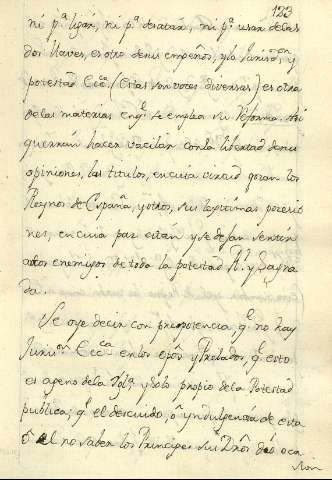 123
ni pª ligar, ni pª desatar, ni pª usar de las
dos llaves, es otro de sus empeños, y la Jurisdⁿ, y
potestad Eccª (Estas son votes diversas) es otra
de las materias en qᵉ se emplea su reforma. Asi
querran hacer vacilar con la libertad de sus
opiniones, los titulos, en cuia virtud gozan los
Reynos de España, y otros, sus legitimas posesio
nes, en cuia paz están y se dejan sentir
estos enemigos de toda la potestad Rˡ y Sagra
da.
Se oye decir con prepotencia, qᵉ no hay
Jurisⁿ Eccª en los Obpos y Prelados, qᵉ esto
es ageno de la Iglª, y solo propio de la Potestad
publica; qᵉ el descuido, ó yndulgencia de esta
ó el no saber los Principes sus Dros dió oca
sion